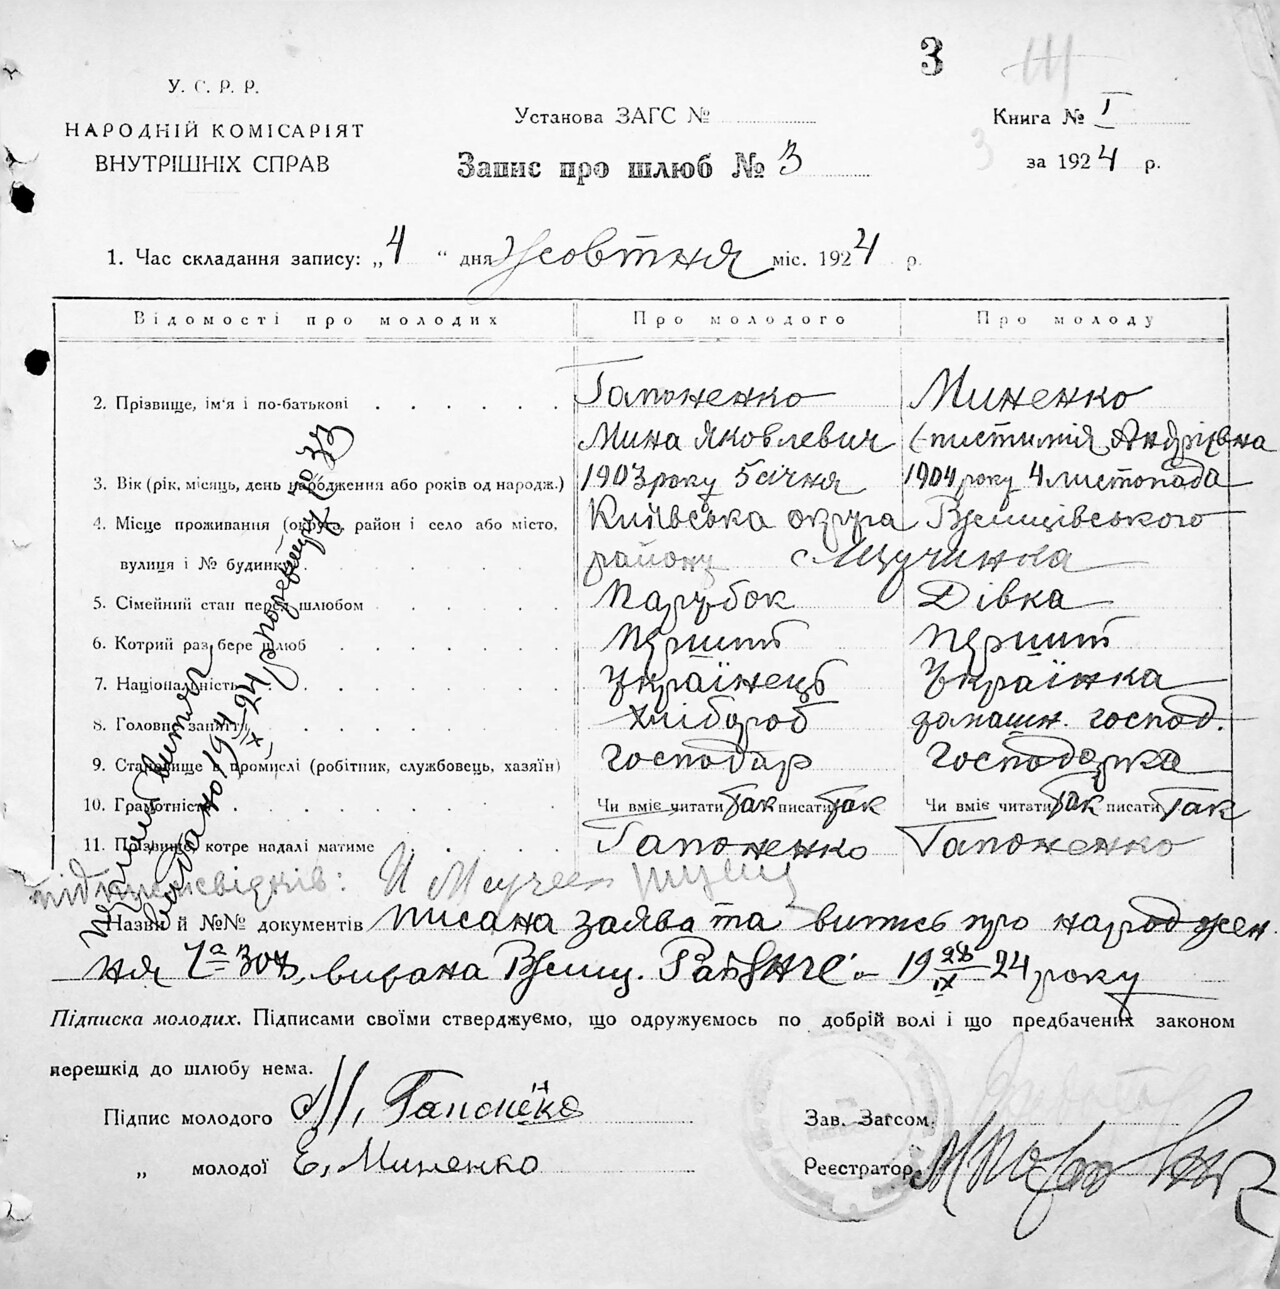 3
У. С. Р. Р.
НАРОДНІЙ КОМІСАРІЯТ
ВНУТРІШНІХ СПРАВ
Установа ЗАГС №
Запис про шлюб № 3
Книга № I
3
за 1924 р.
1. Час складання запису: „4“ дня Жовтня міс. 1924 р.
Відомості про молодих Про молодого Про молоду
2. Прізвище, ім'я і по-батькові Гапоненко Миненко
Мина Яковлевич Андріївна
3. Вік (рік, місяць, день народження або років од народж.) 1903 року 5 січня 1904 року 4 листопада
4. Місце проживання (округа, район і село або місто, Київська округа Ржищівського
вулиця і № будинку) району с Щучинка
5. Сімейний стан перед шлюбом Парубок Дівка
6. Котрий раз бере шлюб перший перший
7. Національність Українець Українка
8. Головне заняття Хлібороб домашн. господ.
9. Становище в промислі (робітник, службовець, хазяїн) господар господарка
10. Грамотність Чи вміє читати Так писати Так Чи вміє читати Так писати Так
11. Прізвище, котре надалі матиме Гапоненко Гапоненко
підписи свідків:
Назви й №№ документів писана заява та витись про народжен
ня видана Ржищ. 19 28/IX 24 року
Підписка молодих. Підписами своїми стверджуємо, що одружуємось по добрій волі і що предбачених законом
перешкід до шлюбу нема.
Підпис молодого М. Гапоненко
„ молодої Є. Миненко
Зав. Загсом.
Реєстратор
Перший витяг
видано 19 4/X 24 р